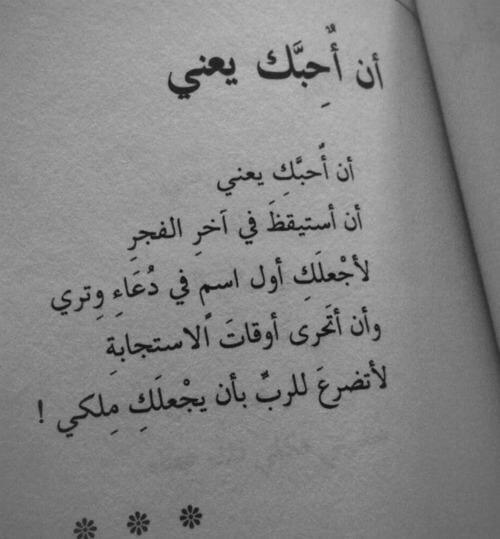 أن أُحِبَّك يعني
أن أُحبَّكِ يعني
أن أستيقظَ في آخرِ الفجرِ
لأجْعلَكِ أول اسمٍ في دُعَاءِ وِتري
وأن أتَحرى أوقاتَ الاستجابةِ
لأتضرعَ للربِّ بأن يجْعلَكِ مِلكي !